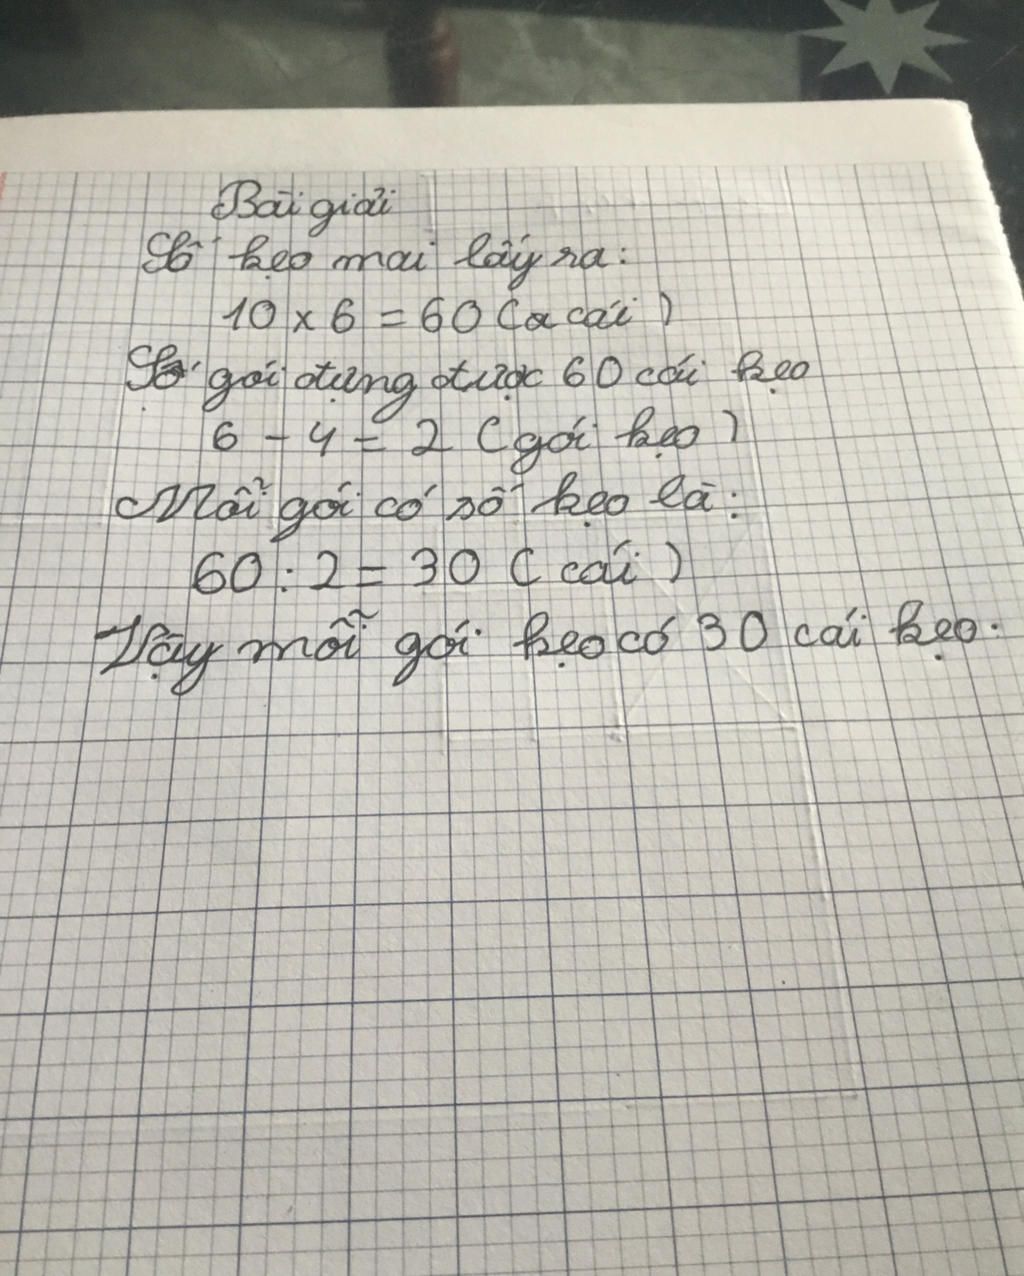 Bài giải
Số kẹo mai lấy ra:
10 x 6 = 60 (a cái)
Số gói đựng được 60 cái kẹo
6 - 4 = 2 (gói kẹo)
Mỗi gói có số kẹo là:
60 : 2 = 30 (cái)
Vậy mỗi gói kẹo có 30 cái kẹo.